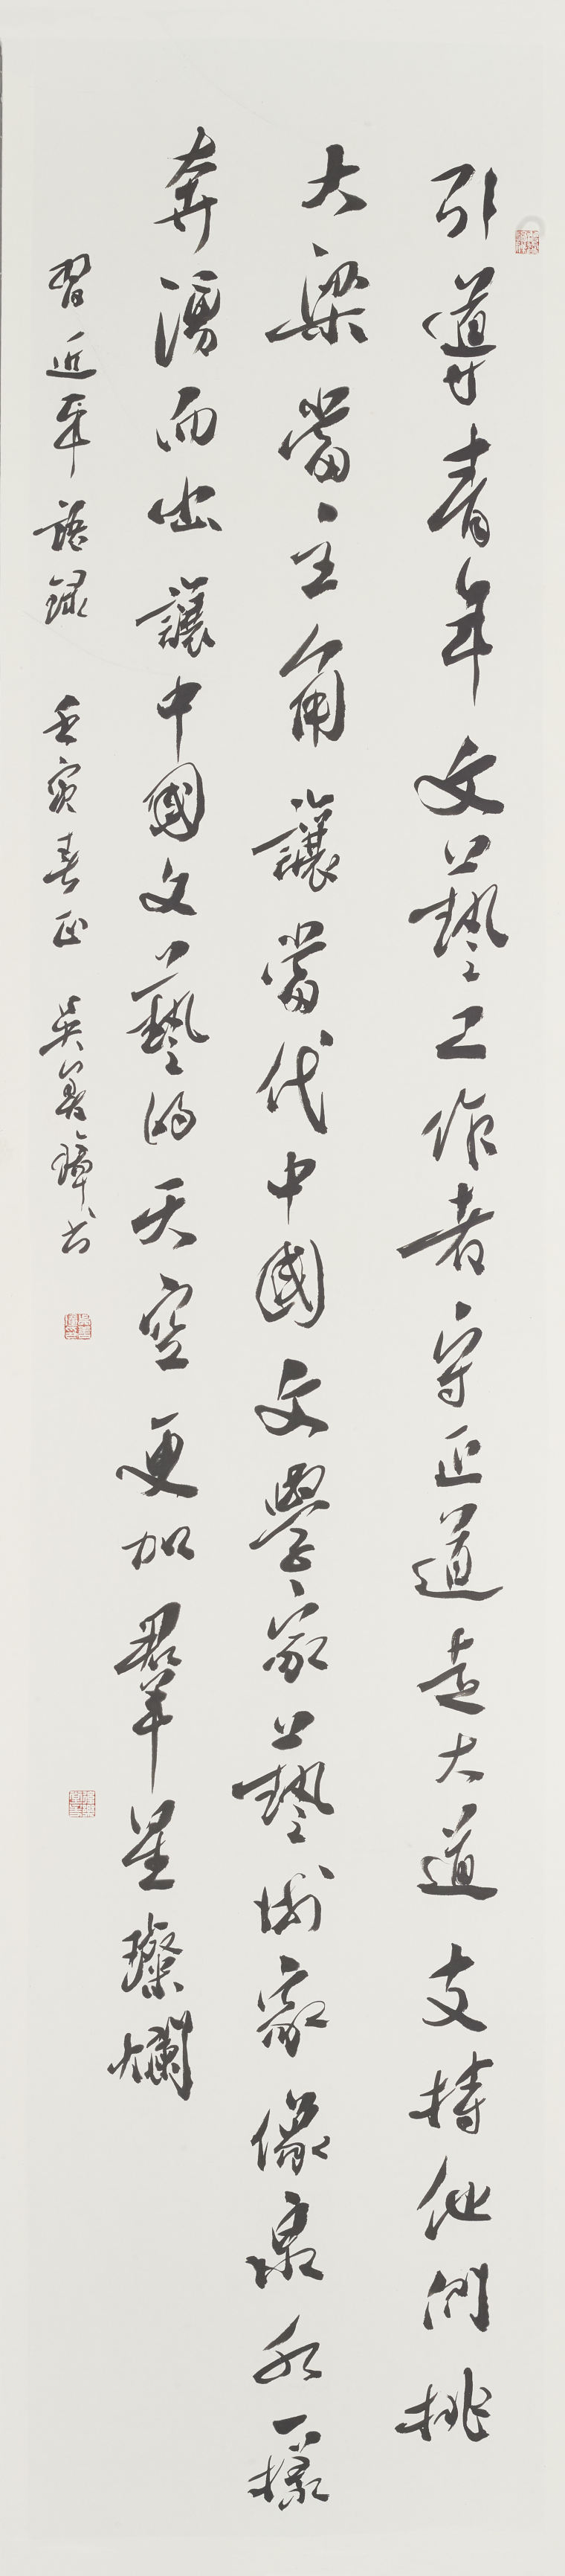 引導青年文藝工作者守正道走大道支持他們挑
大梁當主角讓當代中國文學家藝術家像泉水一樣
奔湧而出讓中國文藝的天空更加羣星璨爛
習近平語録 壬寅春正 吳美璋书